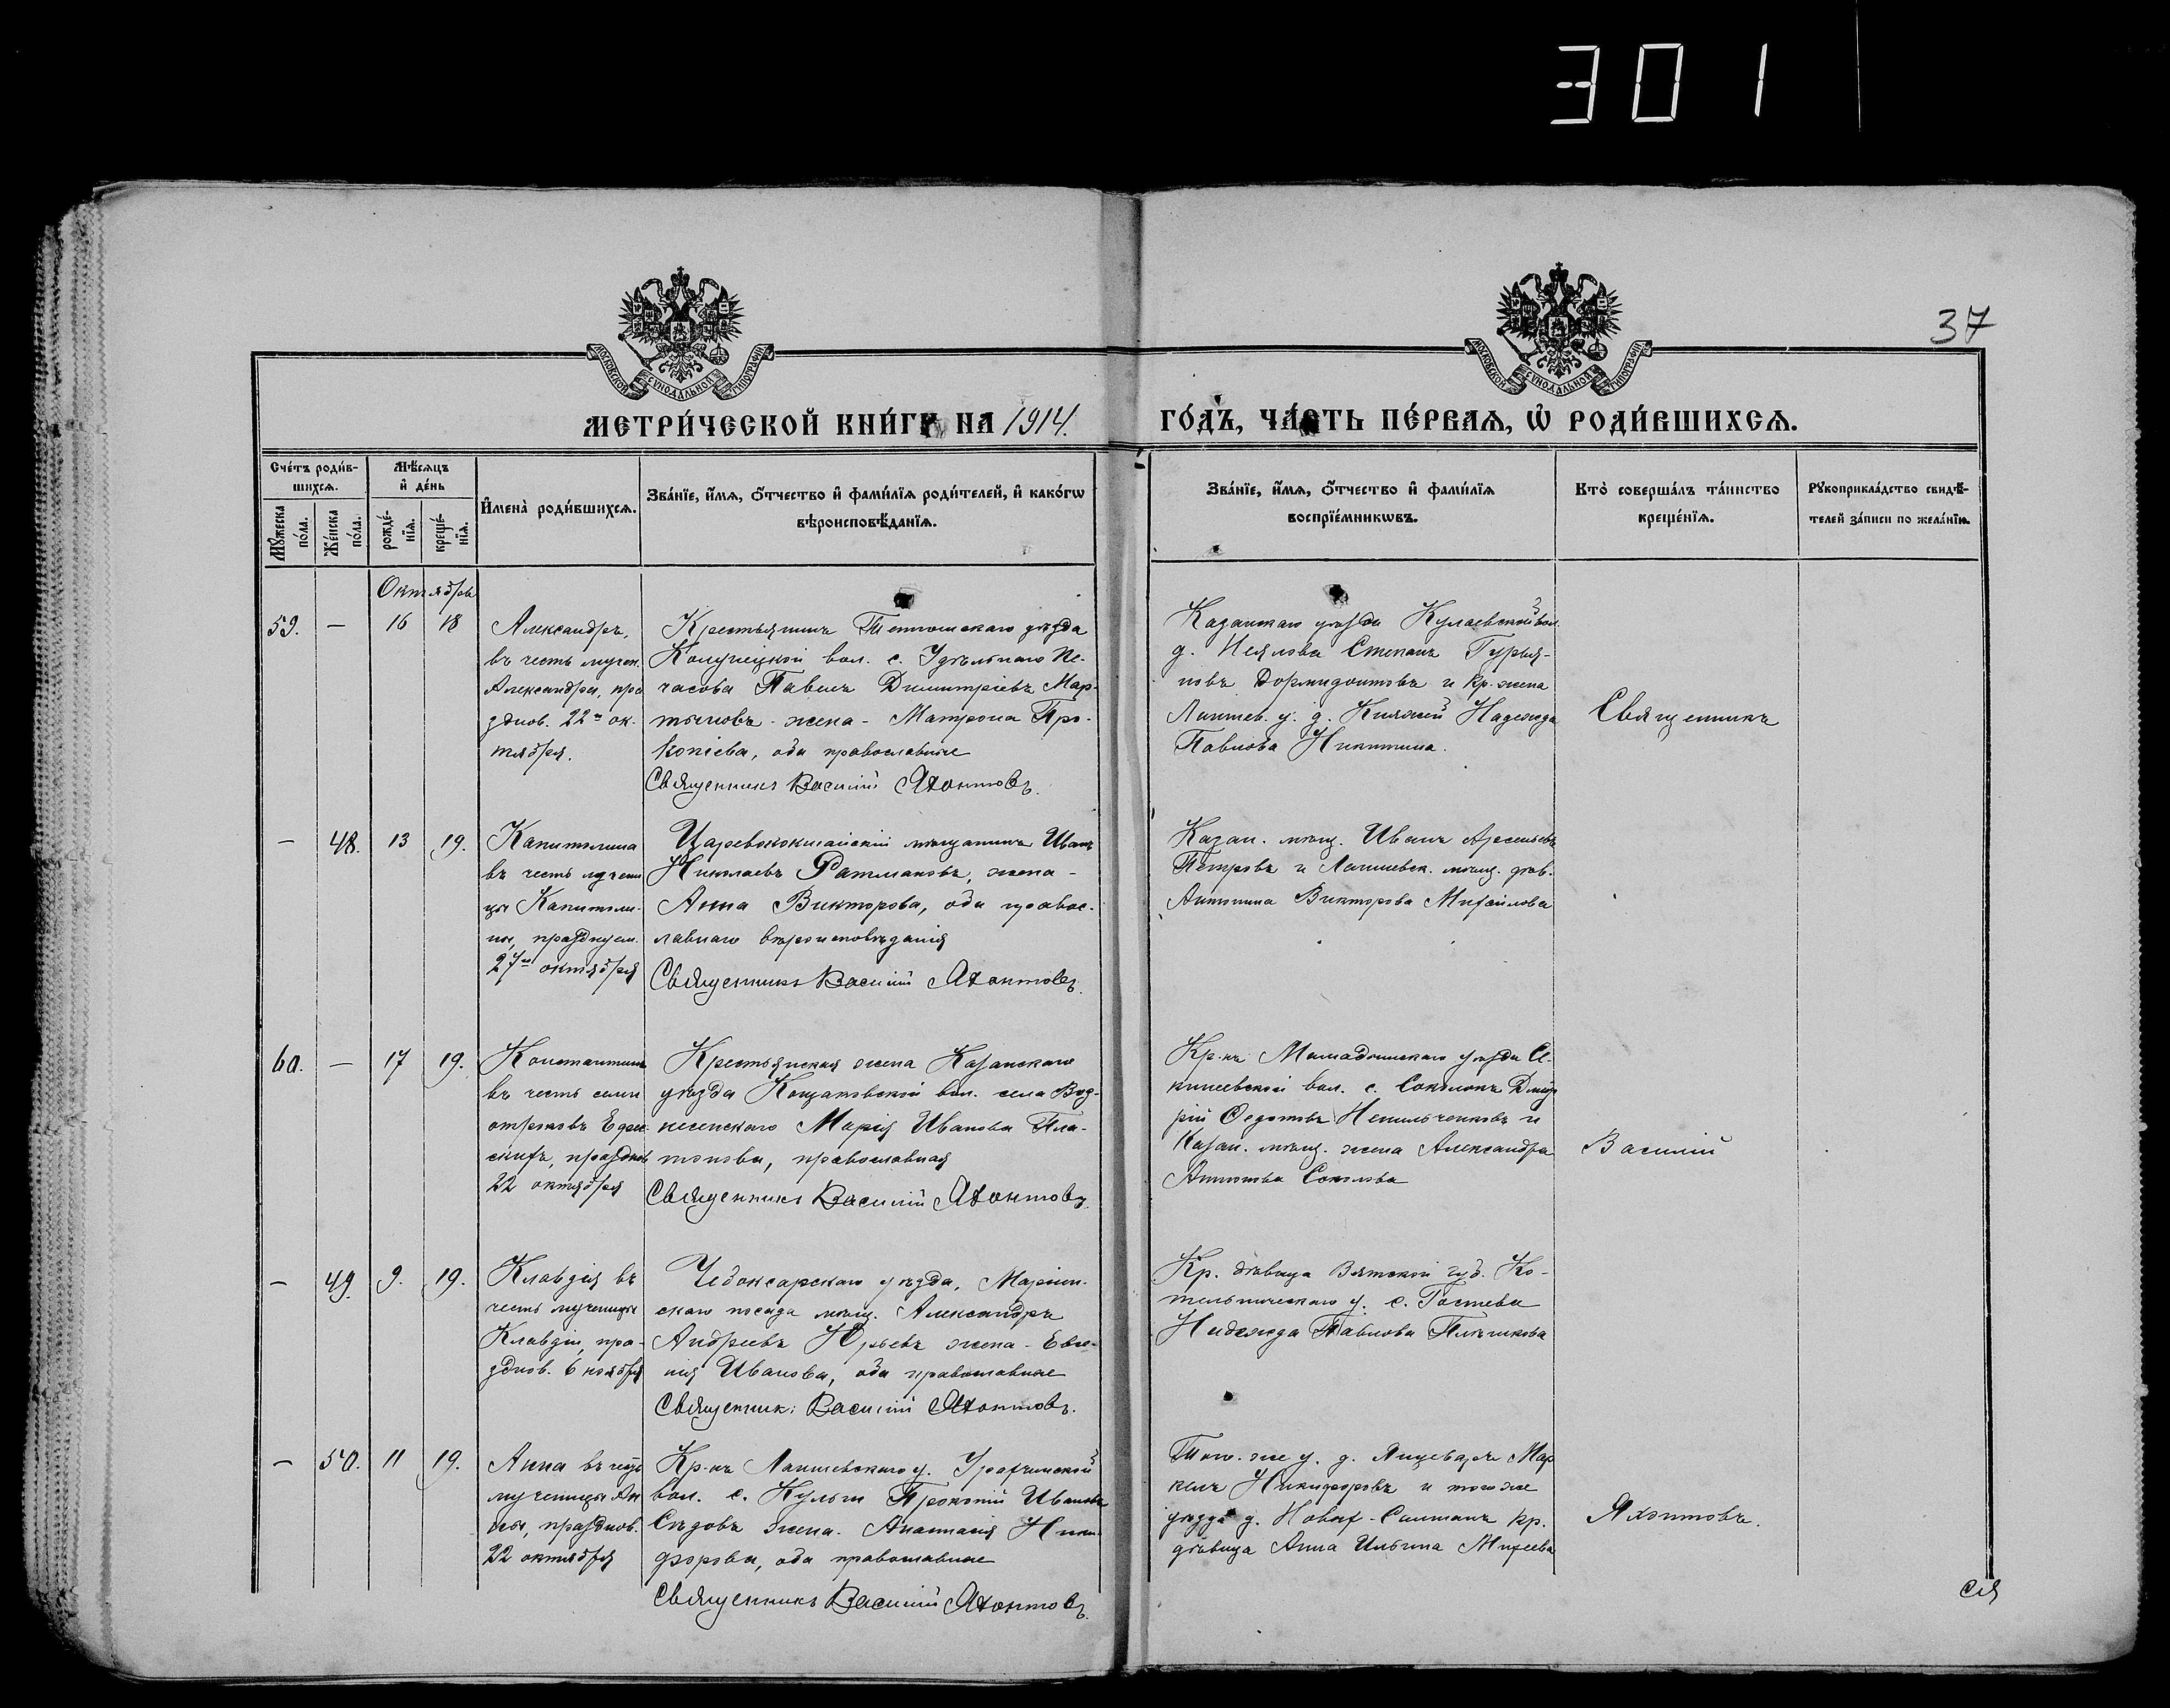 301
37
МОСКОВСКОЙ СѴНОДАЛЬНОЙ ТИПОГРАФІИ
МОСКОВСКОЙ СѴНОДАЛЬНОЙ ТИПОГРАФІИ
МЕТРИ́ЧЕСКОЙ КНИ́ГИ НА 1914.
ГО́ДЪ, ЧА́СТЬ ПЕ́РВАѦ, Ѽ РОДИ́ВШИХСѦ.
Сче́тъ роди́в-
шихсѧ.
Мꙋ́жеска по́ла.
Же́нска по́ла.
Мѣ́сѧцъ
и҆ де́нь
рожде́-
нїѧ.
креще́-
нїѧ.
И҆мена̀ роди́вшихсѧ.
Зва́нїе, и҆́мѧ, ѻ҆́тчество и҆ фами́лїѧ роди́телей, и҆ како́гѡ
вѣроисповѣ́данїѧ.
Зва́нїе, и҆́мѧ, ѻ҆́тчество и҆ фами́лїѧ
воспрїе́мникѡвъ.
Кто̀ соверша́лъ та́инство
креще́нїѧ.
Рꙋкоприкла́дство свидѣ́-
телей за́писи по жела́нїю.
Октября
59. — 16 18
Александръ,
въ честь мучен.
Александра, пра
зднов. 22го ок-
тября.
Крестьянинъ Тетюшскаго уѣзда
вол. с. Удѣльнаго Не-
часова Павелъ Димитріевъ Мар-
тыновъ - жена - Матрона Про-
копіева, оба православные
Священникъ Василій Яхонтовъ.
Казанскаго уѣзда Кулаевской вол.
д. Неялова Степанъ Гурья-
новъ Дормидонтовъ и кр. жена
Лаишев. у. д. Княжей Надежда
Павлова Никитина.
Священникъ
— 48. 13 19.
Капитолина
въ честь мучени
цы Капитоли-
ны, празднуем.
27го октября
Царевококшайскій мѣщанинъ Иванъ
Николаевъ Ратмановъ, жена -
Анна Викторова, оба правос-
лавнаго вѣроисповѣданія
Священникъ Василій Яхонтовъ.
Казан. мѣщ. Иванъ Арсеньевъ
Петровъ и Лаишевск. мѣщ. дѣв.
Антонина Викторова Михайлова
60. — 17 19.
Константинъ
въ честь семи
отроковъ Ефес-
скихъ, празднов
22 октября
Крестьянская жена Казанскаго
уѣзда Кощаковской вол. села Воз-
несенскаго Марія Иванова Пла-
тонова, православная
Священникъ Василій Яхонтовъ.
Кр-нъ Мамадышскаго уѣзда
вол. с. Соколокъ Дмит
рій Федотовъ и
Казан. мѣщ. жена Александра
Антонова Соколова
Василій
— 49. 9. 19.
Клавдія въ
честь мученицы
Клавдіи, пра-
зднов. 6 ноября
Чебоксарскаго уѣзда, Маріин-
скаго посада мѣщ. Александръ
Андреевъ Юрьевъ жена - Евге-
нія Иванова, оба православные
Священник: Василій Яхонтовъ.
Кр. дѣвица Вятской губ. Ко-
тельническаго у. с. Гостева
Надежда Павлова
— 50. 11 19.
Анна въ честь
мученицы Ан
ны, празднов.
22 октября
Кр-нъ Лаишевскаго у.
вол. с. Кульги Прокопій Ивановъ
Сѣдовъ жена - Анастасія Ники-
форова, оба православные
Священникъ Василій Яхонтовъ.
Того-же у. д. Янцеваръ Мар
келъ Никифоровъ и того же
уѣзда д. Новыхъ-Салманъ кр.
дѣвица Анна Ильина Михеева
Яхонтовъ.